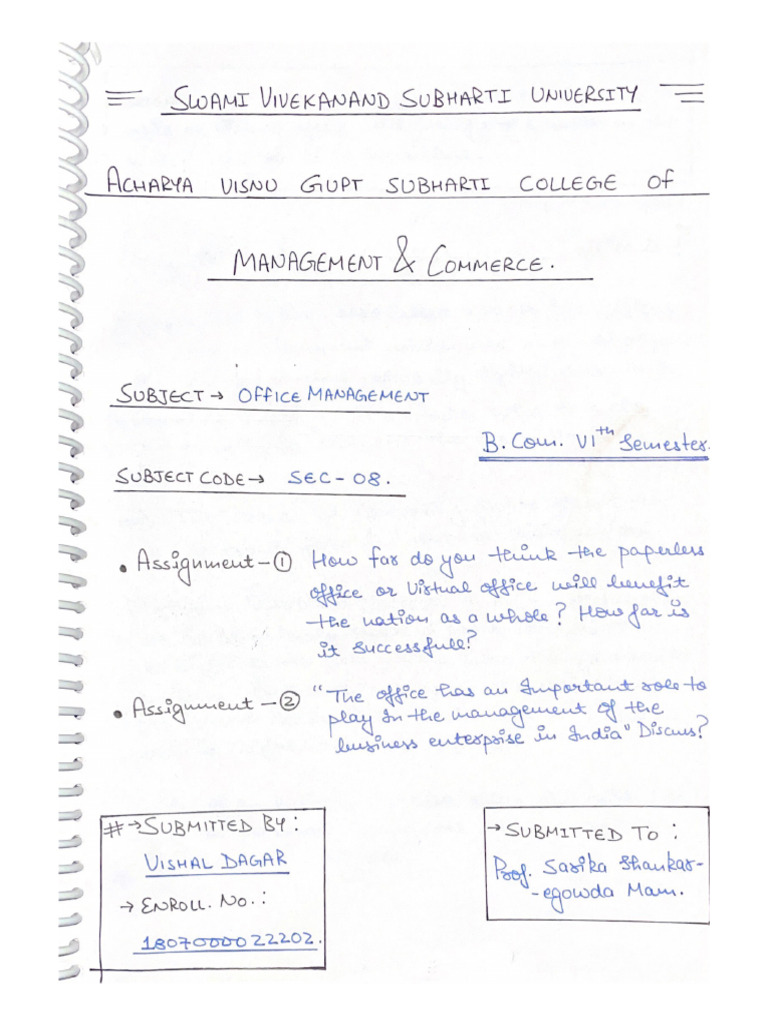 SWAMI VIVEKANAND SUBHARTI UNIVERSITY
ACHARYA VISNU GUPT SUBHARTI COLLEGE OF
MANAGEMENT & COMMERCE.
SUBJECT → OFFICE MANAGEMENT
B. Com. VIth Semester.
SUBJECT CODE → SEC - 08.
• Assignment - ① How far do you think the paperless
office or Virtual office will benefit
the nation as a whole? How far is
it successfull?
• Assignment - ② "The office has an Important role to
play In the management of the
business enterprise in India" Discuss?
# → SUBMITTED BY:
VISHAL DAGAR
→ ENROLL. NO.:
1807000022202.
→ SUBMITTED TO:
Prof. Sarika Shankar-
-egowda Mam.